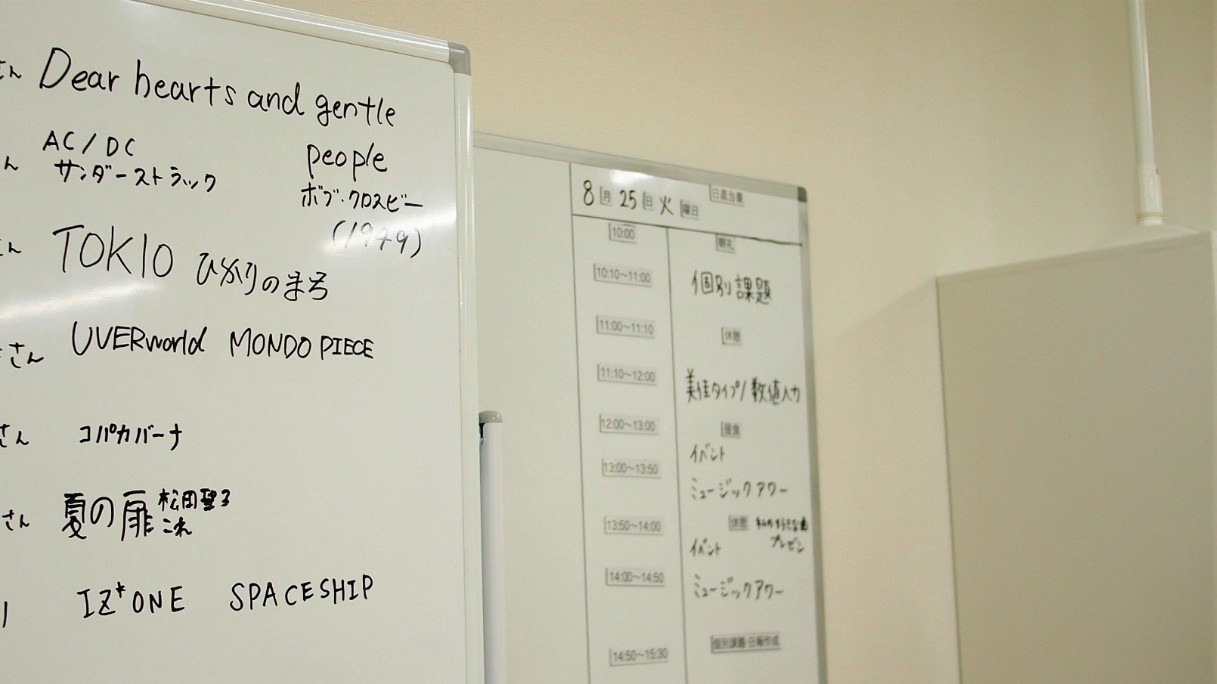 さん Dear hearts and gentle
ん AC/DC people
サンダーストラック ボブ・クロスビー
(1949)
さん TOKIO ひかりのまち
さん UVERworld MONDO PIECE
さん コパカバーナ
さん 夏の扉 松田聖子
これ
IZ*ONE SPACESHIP
8月25日火曜日 日直当番
10:00 朝礼
10:10~11:00 個別課題
11:00~11:10 休憩
11:10~12:00 美佳タイプ/数値入力
12:00~13:00 昼食
イベント
13:00~13:50 ミュージックアワー
13:50~14:00 休憩 私の好きな曲
イベント プレゼン
14:00~14:50 ミュージックアワー
14:50~15:30 個別課題・日報作成